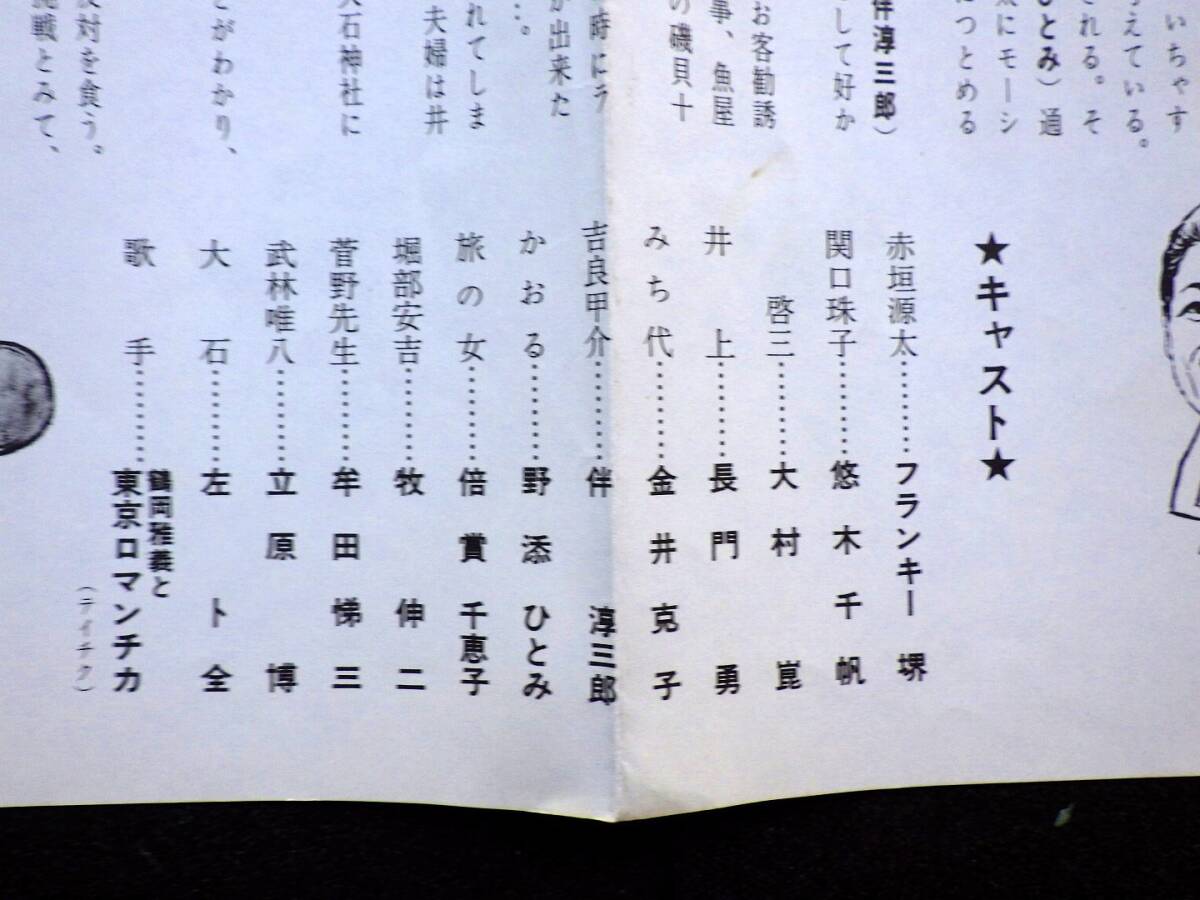 いちゃす
考えている。
される。そ
ひとみ）通
にモーシ
につとめる
伴淳三郎）
して好か
お客勧誘
事、魚屋
の磯貝十
時にラ
が出来た
…。
れてしま
夫婦は井
大石神社に
とがわかり、
反対を食う。
挑戦とみて、
★キャスト★
赤垣源太………フランキー堺
関口珠子………悠木千帆
啓三………大村崑
井上………長門勇
みち代………金井克子
吉良甲介………伴淳三郎
かおる………野添ひとみ
旅の女………倍賞千恵子
堀部安吉………牧伸二
菅野先生………牟田悌三
武林唯八………立原博
大石………左卜全
歌手………鶴岡雅義と
東京ロマンチカ
（テイチク）